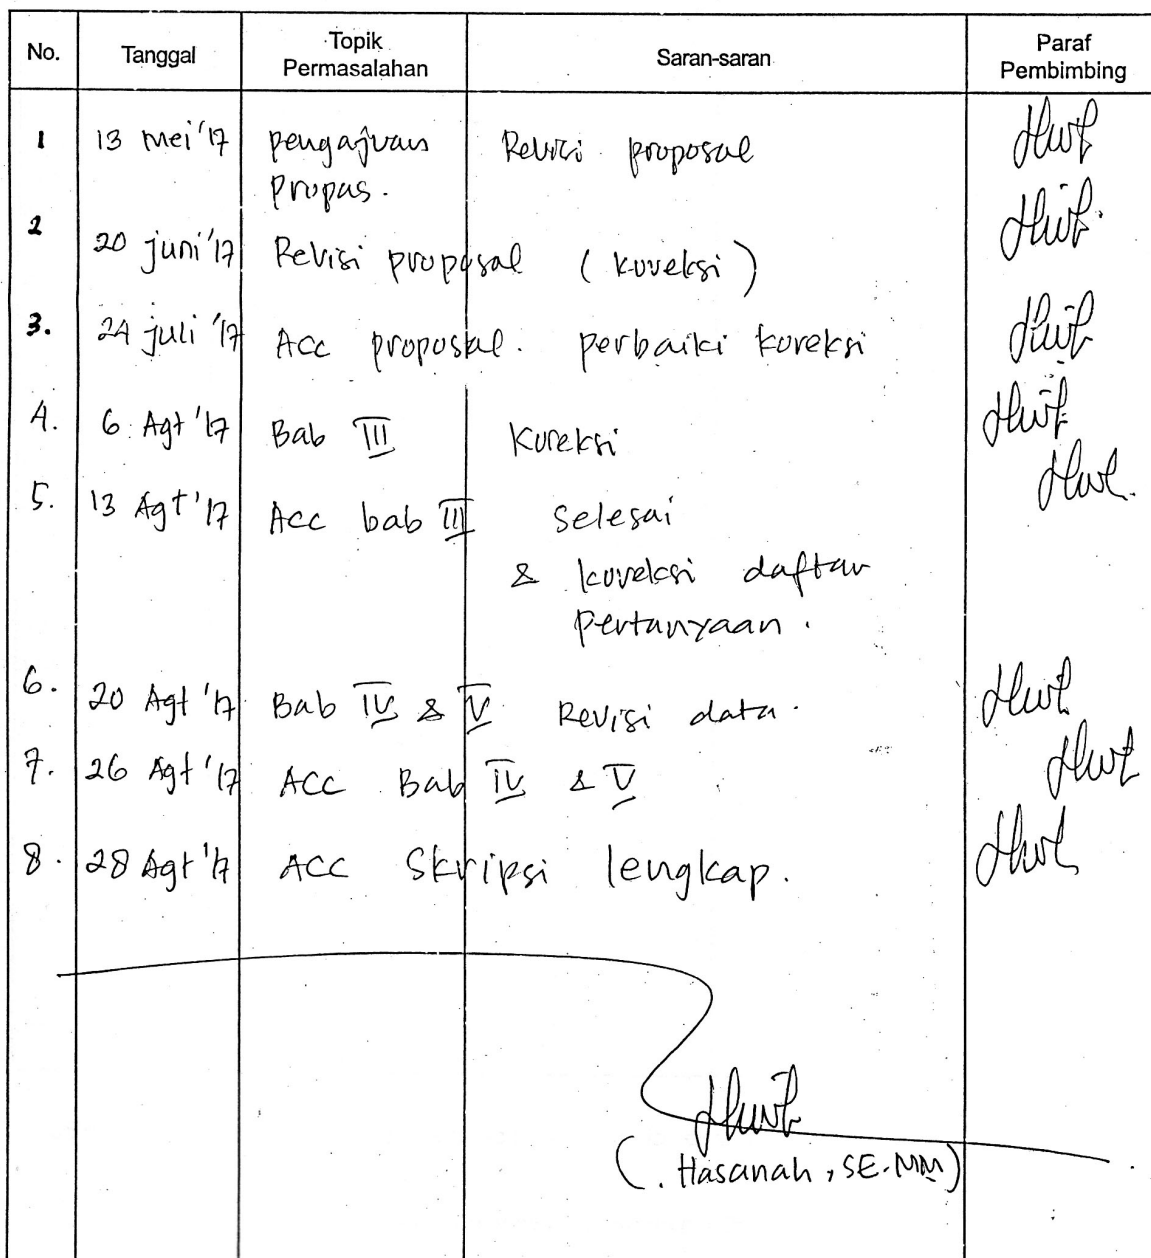 No. Tanggal Topik Permasalahan Saran-saran Paraf Pembimbing
1 13 Mei '17 pengajuan Revisi proposal
Propos.
2 20 juni '17 Revisi proposal (koreksi)
3. 24 juli '17 Acc proposal. perbaiki koreksi
4. 6 Agt '17 Bab III Koreksi
5. 13 Agt '17 Acc bab III selesai
& koreksi daftar
pertanyaan.
6. 20 Agt '17 Bab IV & V Revisi data.
7. 26 Agt '17 ACC Bab IV & V
8. 28 Agt '17 ACC Skripsi lengkap.
(. Hasanah, SE.MM)